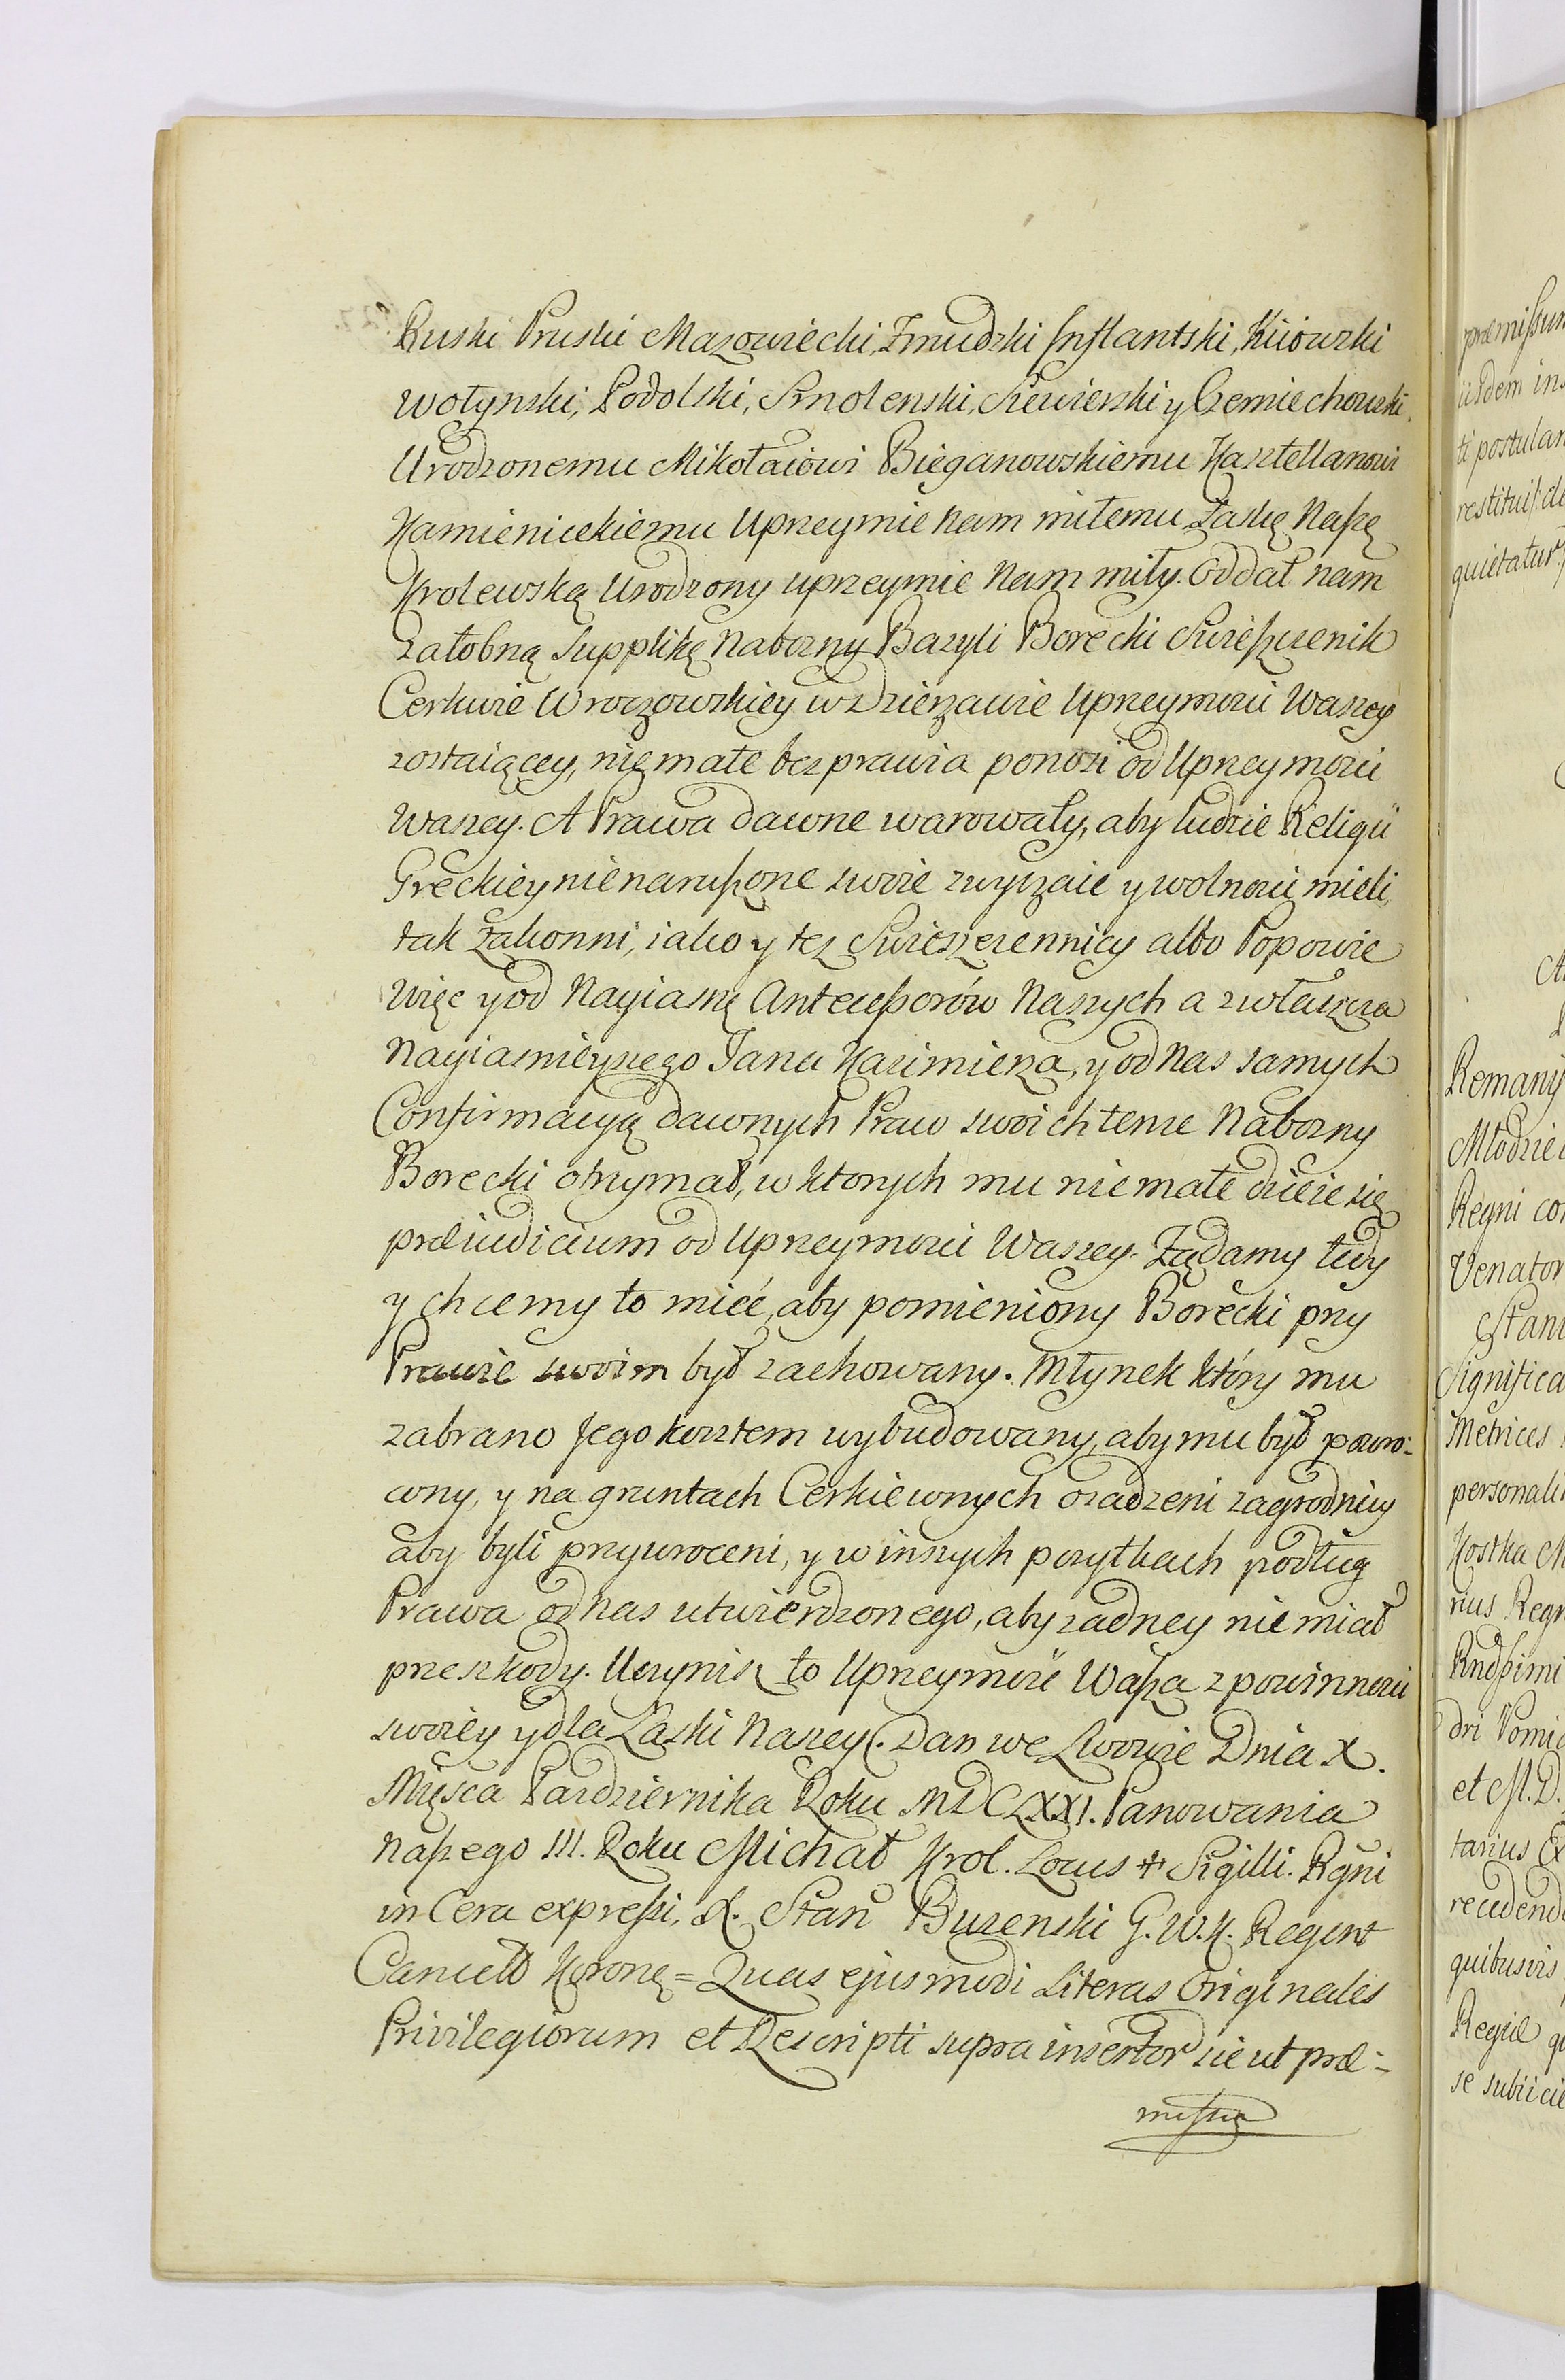 Ruski Pruski Mazowiecki, Zmudzki Inflantski, Kiiowski
Wołynski, Podolski, Smolenski, Siewierski y Czerniechowski.
Urodzonemu Mikołaiowi Bieganowskiemu Kasztellanowi
Kamienieckiemu Uprzeymie Nam miłemu Łaskę Naszę
Krolewską Urodzony uprzeymie Nam miły. Oddał nam
załobną supplikę Nabozny Bazyli Borecki Swieszczenik
Cerkwie Wroczowskiey w Dzierzawie Uprzeymosci Waszey
zostaiącey, nie małe bezprawia ponosi od Uprzeymosci
Waszey. A Prawa dawne warowały, aby ludzie Religii
Greckiey nienaruszone swoie zwyczaie y wolnosci mieli,
tak Zakonni, iako y tez Swieszczennicy albo Popowie
Więc y od Nayiasnę Antecessorów Naszych a zwłaszcza
Nayiasnieyszego Jana Kazimierza, y od Nas samych
Confirmacyą dawnych Praw swoich tenze Nabozny
Borecki otrzymał, w ktorych mu nie małe dzieie się
præiudicium od Uprzeymosci Waszey. Ządamy tedy
y chcemy to mieć, aby pomieniony Borecki przy
Prawie swoim był zachowany. Młynek który mu
zabrano Jego kosztem wybudowany, aby mu był powro=
cony, y na gruntach Cerkiewnych osadzeni zagrodnicy
aby byli przywroceni, y w inszych pozytkach podług
Prawa od Nas utwierdzonego, aby zadney nie miał
przeszkody. Uczynisz to Uprzeymosć Wasza z powinnosci
swoiey y dla Łaski Naszey. Dan we Lwowie Dnia X.
Mięsca Pazdziernika Roku MDCLXXI. Panowania
naszego III. Roku Michał Krol. Locus ⁜ Sigilli. Rgni
in Cera expressi. X. Stan Buzenski G. W. K. Regent
Cancell Koronę = Quas ejusmodi Literas Originales
Privilegiorum et Rescripti supra insertor sic ut præ=
missa
præmissum
iisdem ins
ti postulan
restituit de
quietatur
Romani
Młodzie
Regni con
Venator
Stani
Significa
Metrices
personali
Kostka
rius Regn
Rndssimi
dri
et M. D.
tarius Ex
recedend
quibusvis
Regiæ
se subiicie